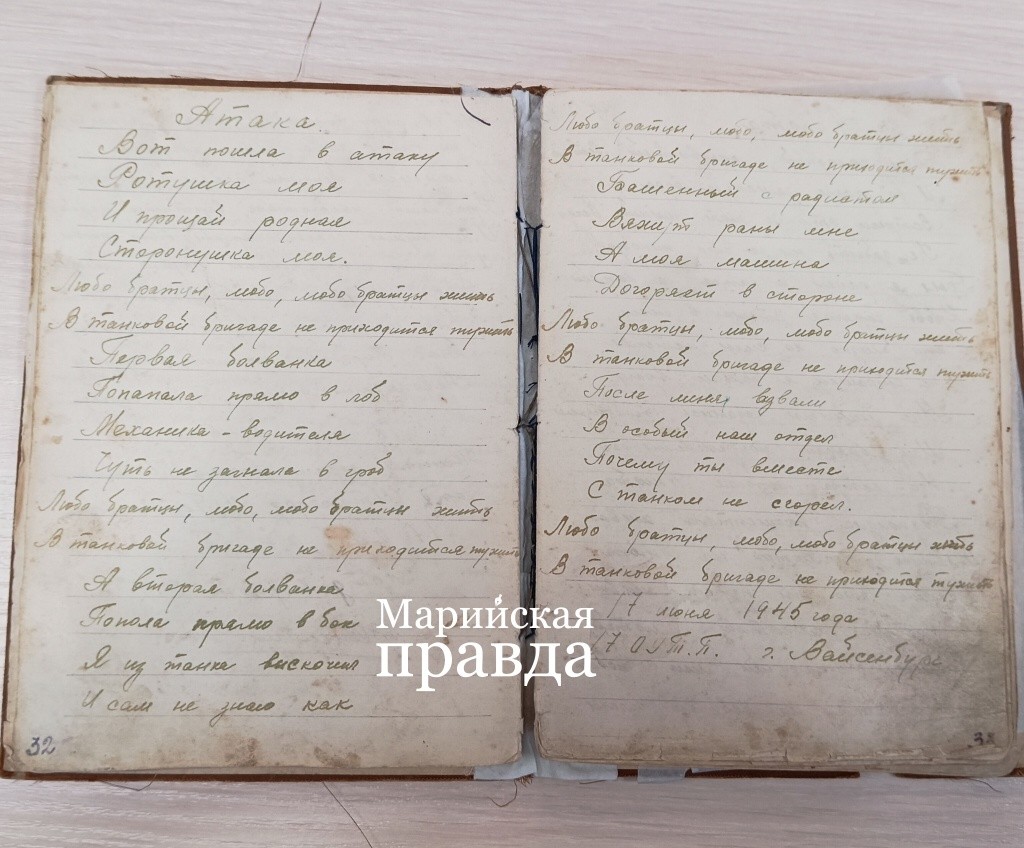 Атака.
Вот пошла в атаку
Ротушка моя
И прощай родная
Сторонушка моя.
Любо братцы, любо, любо братцы жить
В танковой бригаде не приходится тужить
Первая болванка
Попапала прямо в лоб
Механика-водителя
Чуть не загнала в гроб
Любо братцы, любо, любо братцы жить
В танковой бригаде не приходится тужить
А вторая болванка
Попола прямо в бок
Я из танка вискочил
И сам не знаю как
32
Любо братцы, любо, любо братцы жить
В танковой бригаде не приходится тужить
Башенный с радистом
Вяжут раны мне
А моя машина
Догоряет в стороне
Любо братцы, любо, любо братцы жить
В танковой бригаде не приходится тужить
После миня вызвали
В особый наш отдел
Почему ты вместе
С танком не сгорел.
Любо братцы, любо, любо братцы жить
В танковой бригаде не приходится тужить
17 июня 1945 года
17 О.У.Т.П. г. Вайсенбург
Марийская
правда